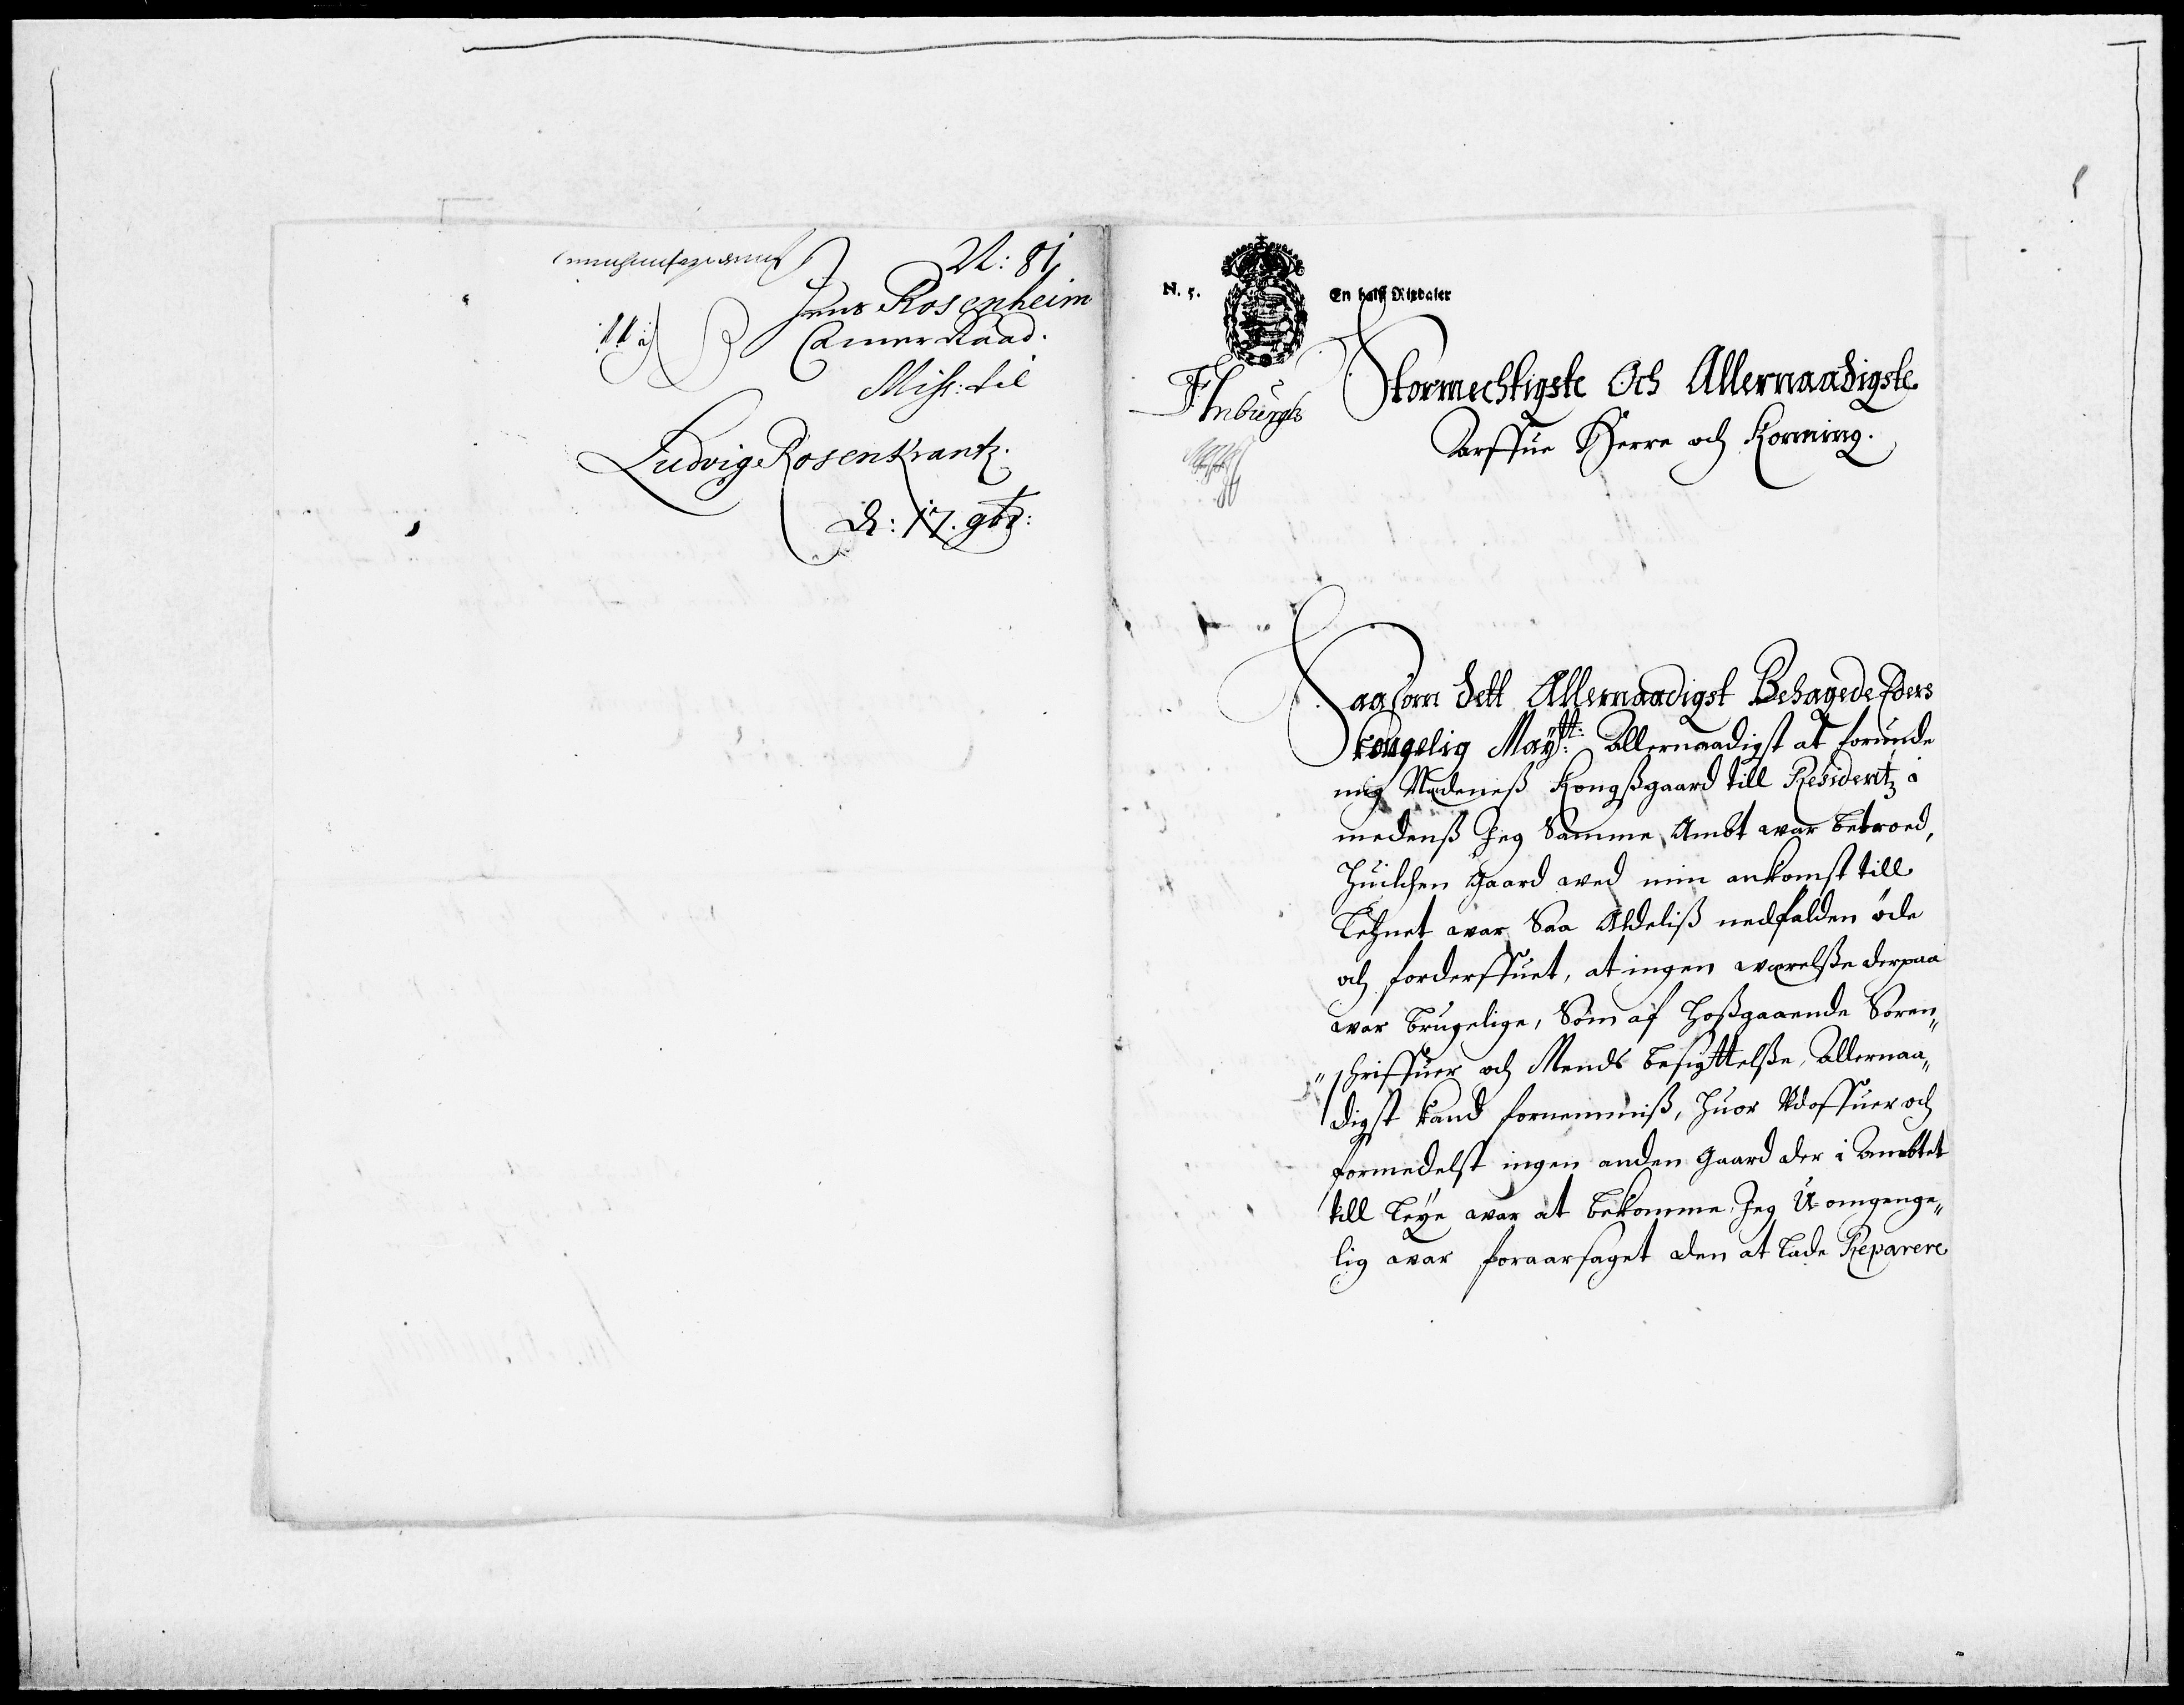 N: 81
Jens Rosenheim
Camer Raad.
Miss: til
Ludvig Rosenkrantz.
d: 17. 9br:
N. 5.
En halff Rixdaler
Stormechtigste Och Allernaadigste
Arffue Herre och Konning.
Saasom dett Allernaadigst Behagede Eders
Kongelig Maÿtt: Allernaadigst at forunde
mig Nedeneß Kongßgaard till Residentz i
medenß Jeg Samme Ambt war betroed,
Huilchen Gaard wed min ankomst till
Lehnet war Saa Aldeliß nedfalden öde
och forderffuet, at ingen werelße derpaa
war brugelige, Som af hoßgaaende Soren„
„schriffuer och Mends besigttelße, Allernaa„
digst kand fornemmiß, huor Udoffuer och
formedelst ingen anden Gaard der i Ambtet
till Leÿe war at bekomme, Jeg U-omgenge„
lig war foraarsaget den at lade Reparere